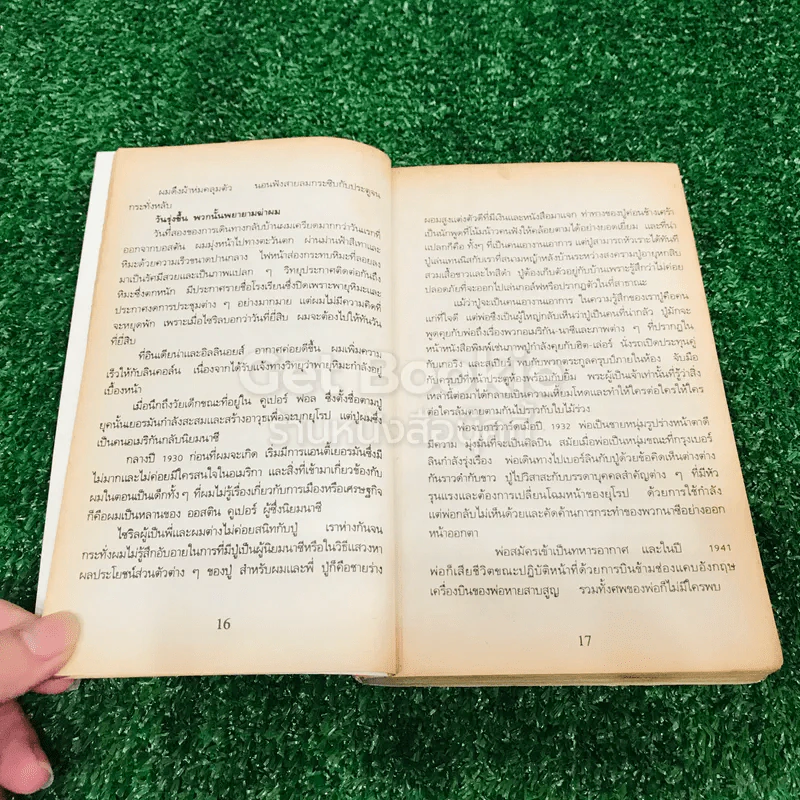 ผมดึงผ้าห่มคลุมตัว นอนฟังสายลมกระซิบกับประตูจน
กระทั่งหลับ
วันรุ่งขึ้น พวกนั้นพยายามฆ่าผม
วันที่สองของการเดินทางกลับบ้านผมเครียดมากกว่าวันแรกที่
ออกจากบอสตัน ผมมุ่งหน้าไปทางตะวันตก ผ่านม่านฟ้าสีเทาและ
หิมะด้วยความเร็วขนาดปานกลาง ไฟหน้าส่องกระทบหิมะที่ลอยลง
มาเป็นรัศมีสวยและเป็นภาพแปลก ๆ วิทยุประกาศติดต่อกันถึง
หิมะซึ่งตกหนัก มีประกาศรายชื่อโรงเรียนซึ่งปิดเพราะพายุหิมะและ
ประกาศงดการประชุมต่าง ๆ อย่างมากมาย แต่ผมไม่มีความคิดที่
จะหยุดพัก เพราะเมื่อไซริลบอกว่าวันที่ยี่สิบ ผมจะต้องไปให้ทันวัน
ที่ยี่สิบ
ที่อินเดียน่าและอิลลินอยส์ อากาศค่อยดีขึ้น ผมเพิ่มความ
เร็วให้กับลินคอล์น เนื่องจากได้รับแจ้งทางวิทยุว่าพายุหิมะกำลังอยู่
เบื้องหน้า
เมื่อนึกถึงวัยเด็กขณะที่อยู่ใน คูเปอร์ ฟอล ซึ่งตั้งชื่อตามปู่
ยุคนั้นเยอรมันกำลังสะสมและสร้างอาวุธเพื่อจะบุกยุโรป แต่ปู่ผมซึ่ง
เป็นคนอเมริกันกลับนิยมนาซี
กลางปี 1930 ก่อนที่ผมจะเกิด เริ่มมีการแอนตี้เยอรมันซึ่งมี
ไม่มากและไม่ค่อยมีใครสนใจในอเมริกา และสิ่งที่เข้ามาเกี่ยวข้องกับ
ผมในตอนเป็นเด็กทั้งๆ ที่ผมไม่รู้เรื่องเกี่ยวกับการเมืองหรือเศรษฐกิจ
ก็คือผมเป็นหลานของ ออสติน คูเปอร์ ผู้ซึ่งนิยมนาซี
ไซริลผู้เป็นพี่และผมต่างไม่ค่อยสนิทกับปู่ เราห่างกันจน
กระทั่งผมไม่รู้สึกอับอายในการที่มีปู่เป็นผู้นิยมนาซีหรือในวิธีแสวงหา
ผลประโยชน์ส่วนตัวต่าง ๆ ของปู่ สำหรับผมและพี่ ปู่ก็คือชายร่าง
16
ผอมสูงแต่งตัวดีที่มีเงินและหนังสือมาแจก ท่าทางของปู่ค่อนข้างเศร้า
เป็นนักพูดที่โน้มน้าวคนฟังให้คล้อยตามได้อย่างยอดเยี่ยม และที่น่า
แปลกก็คือ ทั้งๆ ที่เป็นคนเอางานอาการ แต่ปู่สามารถหัวเราะได้ทันที
ปู่เล่นเทนนิสกับเราที่สนามหญ้าหลังบ้านระหว่างสงครามปู่อายุหกสิบ
สวมเสื้อขาวและไทสีดำ ปู่ต้องเก็บตัวอยู่กับบ้านเพราะรู้สึกว่าไม่ค่อย
ปลอดภัยที่จะออกไปเล่นกอล์ฟหรือปรากฏตัวในที่สาธารณะ
แม้ว่าปู่จะเป็นคนเอางานอาการ ในความรู้สึกของเราปู่คือคน
แก่ที่ใจดี แต่พ่อซึ่งเป็นผู้ใหญ่กลับเห็นว่าปู่เป็นคนที่น่ากลัว ปู่มักจะ
พูดคุยกับพ่อถึงเรื่องพวกอเมริกัน-นาซีและภาพต่าง ๆ ที่ปรากฏใน
หน้าหนังสือพิมพ์เช่นภาพปู่กำลังคุยกับฮิต-เล่อร์ นั่งรถเปิดประทุนคู่
กับเกอริง และสเปียร์ พบกับพวกตระกูลครุปป์ภายในห้อง จับมือ
กับครุปป์ที่หน้าประตูห้องพร้อมกับยิ้ม พระผู้เป็นเจ้าเท่านั้นที่รู้ว่าสิ่ง
เหล่านี้ต่อมาได้กลายเป็นความเหี้ยมโหดและทำให้ใครต่อใครใครให้ใคร
ต่อใครล้มตายตามกันไปราวกับใบไม้ร่วง
พ่อจบฮาร์วาร์ดเมื่อปี 1932 พ่อเป็นชายหนุ่มรูปร่างหน้าตาดี
มีความ มุ่งมั่นที่จะเป็นศิลปิน สมัยเมื่อพ่อเป็นหนุ่มขณะที่กรุงเบอร์
ลินกำลังรุ่งเรือง พ่อเดินทางไปเบอร์ลินกับปู่ด้วยข้อคิดเห็นต่างต่าง
กันราวดำกับขาว ปู่ไปวิสาสะกับบรรดาบุคคลสำคัญต่าง ๆ ที่มีหัว
รุนแรงและต้องการเปลี่ยนโฉมหน้าของยุโรป ด้วยการใช้กำลัง
แต่พ่อกลับไม่เห็นด้วยและคัดค้านการกระทำของพวกนาซีอย่างออก
หน้าออกตา
พ่อสมัครเข้าเป็นทหารอากาศ และในปี 1941
พ่อก็เสียชีวิตขณะปฏิบัติหน้าที่ด้วยการบินข้ามช่องแคบอังกฤษ
เครื่องบินของพ่อหายสาบสูญ รวมทั้งศพของพ่อก็ไม่มีใครพบ
17